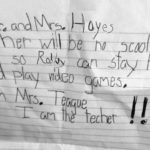 . and Mrs. Hayes
her will be no scool
so Robby can stay
d play video games.
Mrs. Teague
I am the techer !!